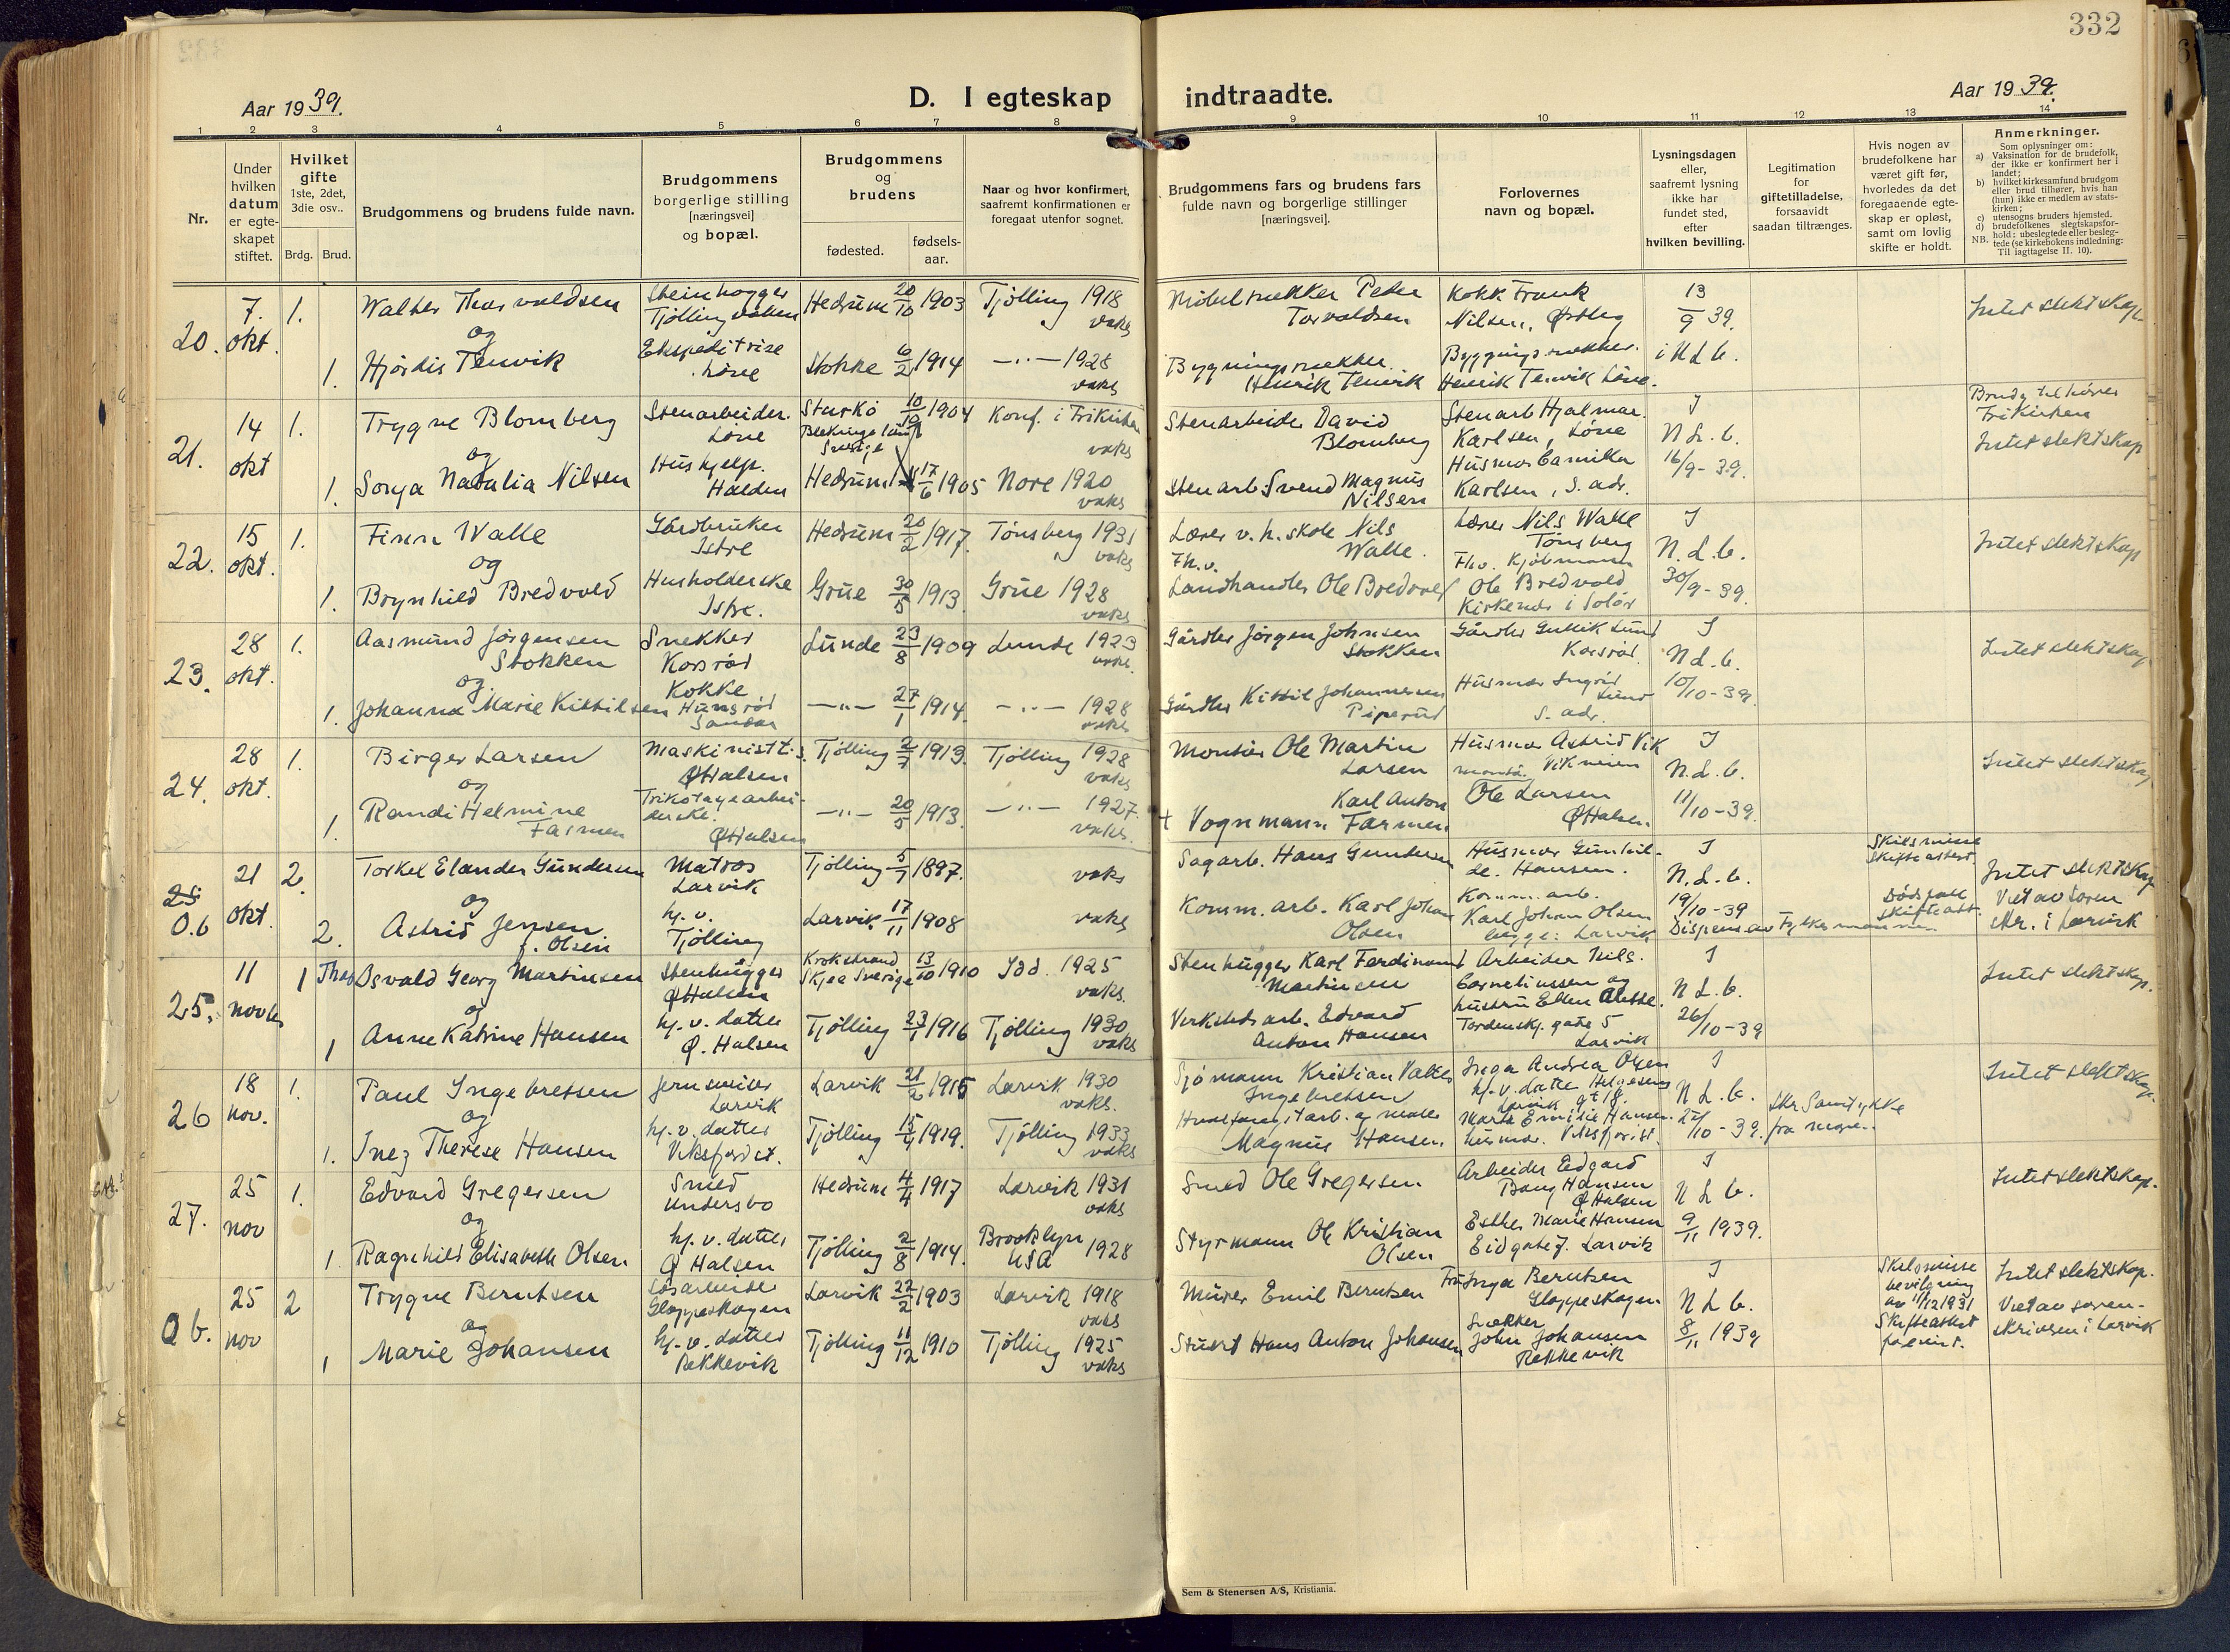 332
Aar 1939.
D. I egteskap indtraadte.
Aar 1939.
1 2 3 4 5 6 7 8 9 10 11 12 13 14
Nr.
Under hvilken datum er egteskapet stiftet.
Hvilket gifte 1ste, 2det, 3die osv..
Brdg. Brud.
Brudgommens og brudens fulde navn.
Brudgommens borgerlige stilling [næringsvei] og bopæl.
Brudgommens og brudens
fødested.
fødselsaar.
Naar og hvor konfirmert, saafremt konfirmationen er foregaat utenfor sognet.
Brudgommens fars og brudens fars fulde navn og borgerlige stillinger [næringsvei].
Forlovernes navn og bopæl.
Lysningsdagen eller, saafremt lysning ikke har fundet sted, efter hvilken bevilling.
Legitimation for giftetilladelse, forsaavidt saadan tiltrænges.
Hvis nogen av brudefolkene har været gift før, hvorledes da det foregaaende egteskap er opløst, samt om lovlig skifte er holdt.
Anmerkninger.
Som oplysninger om:
a) Vaksination for de brudefolk, der ikke er konfirmert her i landet;
b) hvilket kirkesamfund brudgom eller brud tilhører, hvis han (hun) ikke er medlem av statskirken;
c) utensogns bruders hjemsted.
d) brudefolkenes slegtskapsforhold: ubeslegtede eller beslegtede (se kirkebokens indledning:
NB. Til iagttagelse II. 10).
20. 7. okt. 1. Walter Thorvaldsen
Steinhogger Tjølling
Hedrum 20/10 1903 Tjølling 1918 vaks
Møbelsnekker Peder Torvaldsen
Kokk Frank Nilsen, Østbeg
13/9 39. i N.L.b.
Intet slektskap
og
1. Hjørdis Tenvik
Ekspeditrise Løve
Stokke 6/2 1914 —"— 1928 vaks
Bygningssnekker Henrik Tenvik
Bygningssnekker Henrik Tenvik Løve.
21. 14 okt 1. Trygve Blomberg
Stenarbeider. Løve
Sturkö Blekinge län Sverige 10/12 1904 Konf. i Frikirken vaks
Stenarbeide David Blomberg
Stenarb Hjalmar Karlsen, Løve
I N.L.b. 16/9-39.
Brudg tilhører Frikirken
Intet slektskap
og
1. Sonja Natalia Nilsen
Hushjelp. Halden
Hedrum 17/6 1905 Nore 1920 vaks
Stenarb. Svend Magnus Nilsen
Husmor Camilla Karlsen, s. adr.
22. 15 okt. 1. Finn Walle
Gårdbruker Istre
Hedrum 20/2 1917. Tønsberg 1931 vaks
Lærer v. h. skole Nils Walle.
Lærer Nils Walle Tønsberg
I N.L.b. 30/9-39.
Intet slektskap
og
1. Brynhild Bredvold
Husholderske Istre.
Grue 30/5 1913. Grue 1928 vaks
Fh.v. Landhandler Ole Bredvold
Fhv. Kjøbmann Ole Bredvold Kirkenær i Solør
23. 28 okt. 1. Aasmund Jørgensen Stokken
Snekker Korsrød
Lunde 23/8 1909 Lunde 1923 vaks.
Gårdbr Jørgen Johnsen Stokken
Gårdbr Gullik Lund Korsrød.
I N.L.b. 10/10-39.
Intet slektskap
og
1. Johanne Marie Kittilsen
Kokke Hunsrød Sandar
—"— 27/1 1914. —"— 1928 vaks
Gårdbr Kittil Johannesen Piperud
Husmor Ingrid Lund s. adr.
24. 28 okt. 1. Birger Larsen
Maskinist t.s. Ø Halsen
Tjølling 2/7 1913. Tjølling 1928 vaks
Montør Ole Martin Larsen
Husmor Astrid Vik
I N.L.b. 11/10-39.
Intet slektskap
og
1. Randi Helmine Farmen
Trikotagearbeiderske. Ø Halsen
—"— 20/5 1913. —"— 1927. vaks.
† Vognmann Karl Anton Farmen.
Ole Larsen Ø Halsen.
25. O.b 21 okt. 2. Torkel Elander Gundersen
Matros Larvik
Tjølling 5/7 1897. vaks
Sagarb. Hans Gundersen
Husmor Gunhilde. Hansen.
I N.L.b. 19/10-39
Skilsmisse skifteattest
Intet slektskap
Viet av Soren skr. i Larvik
og
2. Astrid Jensen f. Olsen
hj.v. Tjølling
Larvik 17/11 1908 vaks
Komm. arb. Karl Johan Olsen
Komm. arb. Karl Johan Olsen begge: Larvik
Dispens. av Fylkesmannen
Dødsfall skifteatt.
25. 11 novbr 1 Thor Osvald Georg Martinsen
Stenhugger Ø Halsen
Krokstrand Skjee Sverige 13/10 1910 Idd. 1925 vaks.
Stenhugger Karl Ferdinand Martinsen
Arbeider Nils. Corneliussen og hustru Ellen Anette.
I N.L.b. 26/10-39
Intet slektskap.
og
1 Anne Katrine Hansen
hj.v. datter Ø. Halsen
Tjølling 23/1 1916 Tjølling 1930 vaks
Verkstedsarb. Edvard Anton Hansen
Tordenskj. gate 5 Larvik
26 18 nov. 1. Paul Ingebretsen
Jernsveiser Larvik
Larvik 21/2 1915 Larvik 1930 vaks.
Sjømann Kristian Valter Ingebretsen
Inga Andrea Olsen hj.v. datter Helgesens gt 18. Larvik
I N.L.b. 27/10-39.
Skr Samtykke fra
Intet slektskap.
og
1. Inez Therese Hansen
hj.v. datter Viksfjord.
Tjølling 15/4 1919. Tjølling 1933 vaks
Magnus Hansen.
Marta Emilie Hansen. husmor. Viksfjord.
27. 25 nov 1. Edvard Gregersen
Smed Undersbo
Hedrum 4/4 1917 Larvik 1931 vaks
Smed Ole Gregersen.
Arbeider Edgard Bang Hansen Ø Halsen
I N.L.b. 9/11 1939.
Intet slektskap.
og
1. Ragnhild Elisabeth Olsen.
hj.v. datter Ø Halsen
Tjølling 2/8 1914. Brooklyn USA 1928
Styrmann Ole Kristian Olsen
Esther Marie Hansen Eidgate 7. Larvik
Ob. 25 nov 2 Trygve Berntsen
Løsarbeider Gloppeskogen
Larvik 22/2 1903 Larvik 1918 vaks
Murer Emil Berntsen
Fru Inga Berntsen Gloppeskogen
I N.L.b. 8/11 1939
Skilsmisse bevilgning av 11/12 1931 Skifteattest
Intet slektskap.
Viet av sorenskriveren i Larvik
og
1 Marie Johansen
hj.v. datter Rekkevik
Tjølling 11/12 1910 Tjølling 1925 vaks
Stuert Hans Anton Johansen
Snekker John Johansen Rekkevik
Sem & Stenersen A/S, Kristiania.